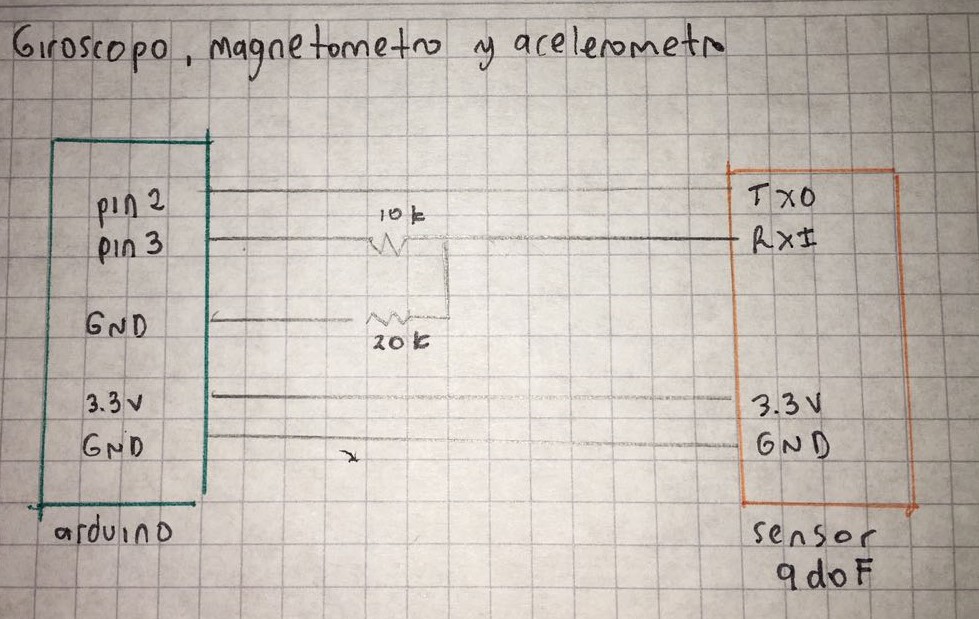 Giroscopo, magnetometro y acelerometro
pin 2
pin 3
GND
3.3v
GND
arduino
10k
20k
TXO
RXI
3.3V
GND
sensor
9doF